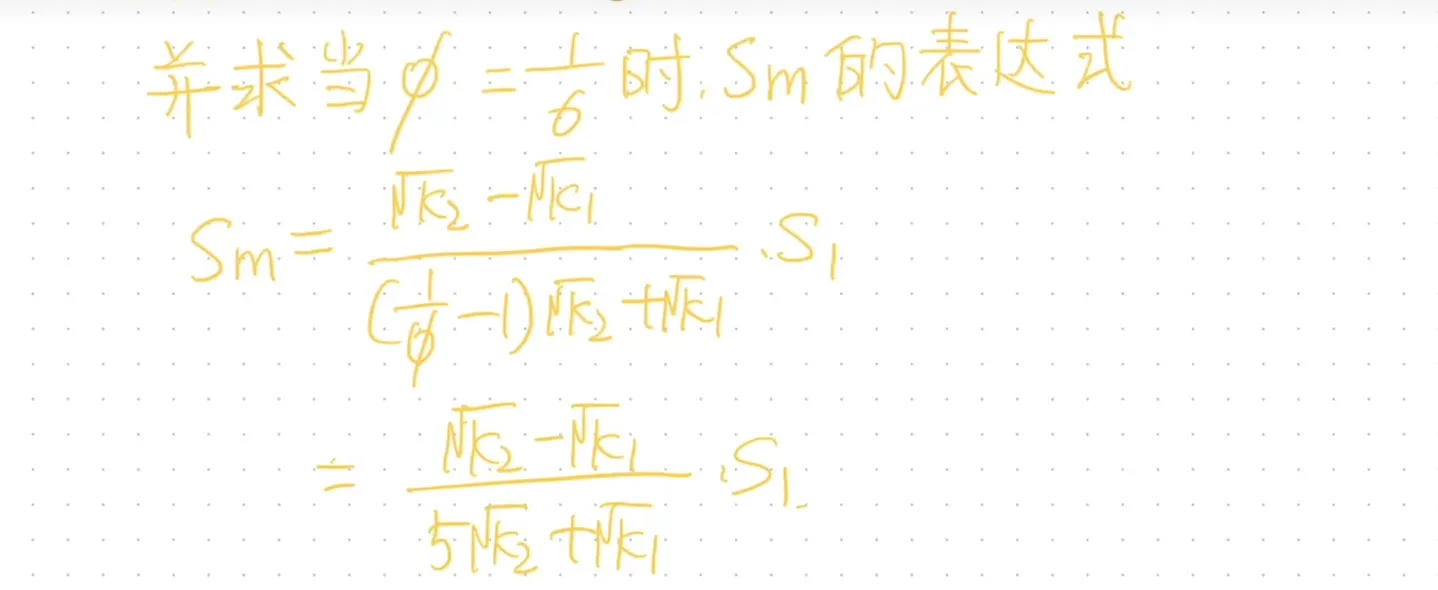 并求当φ=1/6时.Sm的表达式
Sm=(√K₂-√K₁)/((1/φ-1)√K₂+√K₁)·S₁
=(√K₂-√K₁)/(5√K₂+√K₁)·S₁